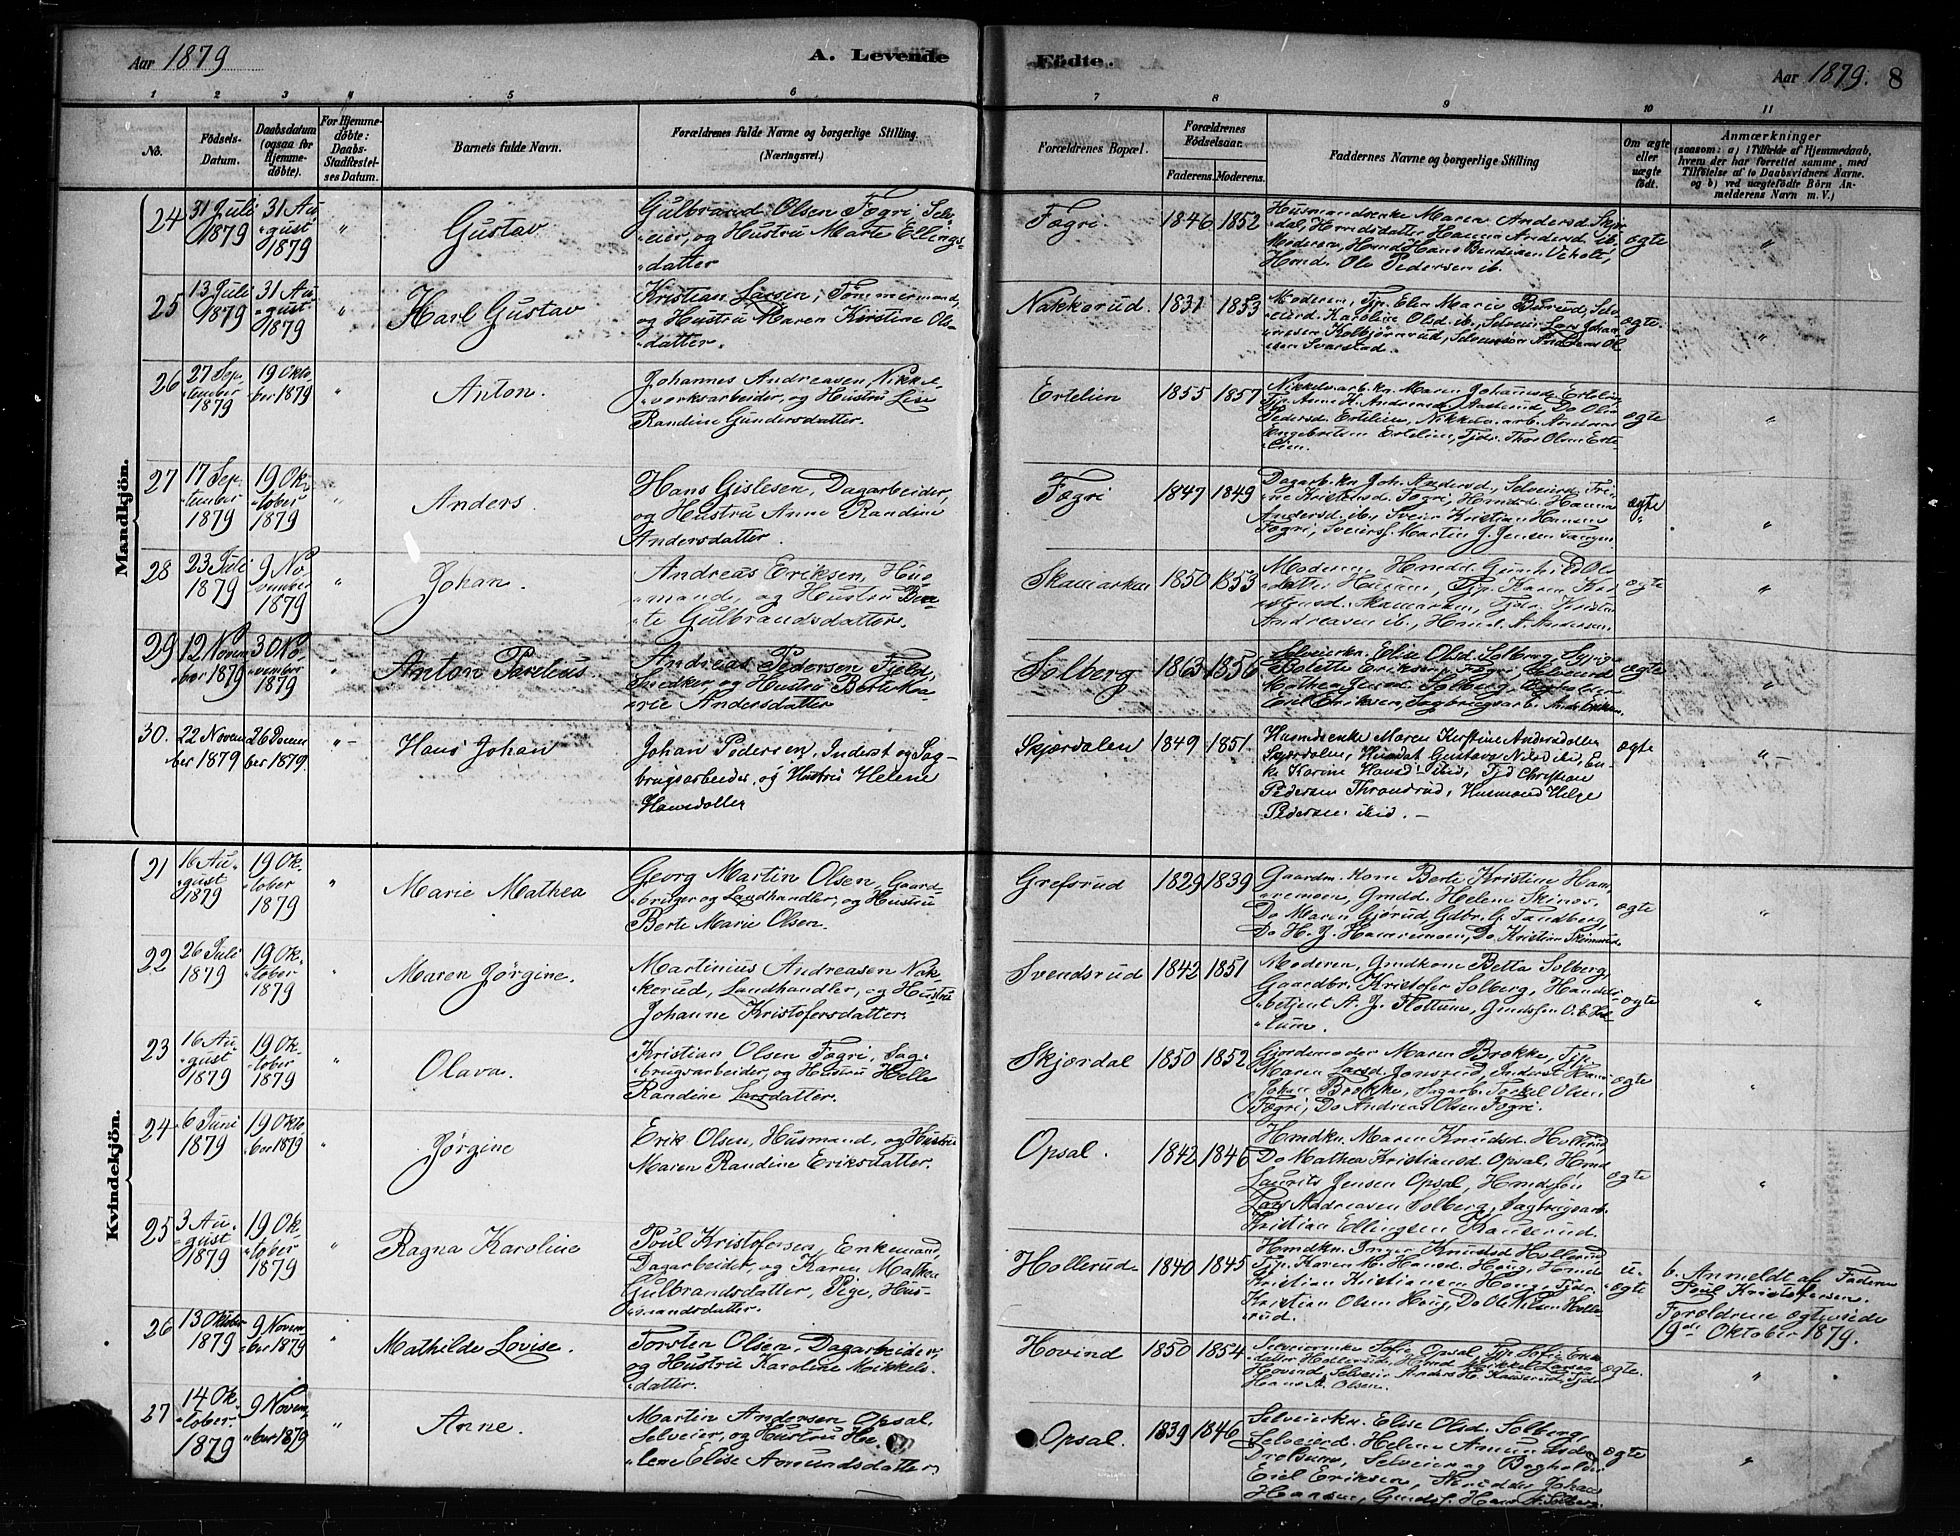 Aar 1879
A. Levende
Fødte.
Aar 1879. 8
1 2 3 4 5 6 7 8 9 10 11
No.
Fødsels-
Datum.
Daabsdatum
(ogsaa for
Hjemme-
døbte).
For Hjemme-
døbte:
Daabs-
Stadfæstel-
ses Datum.
Barnets fulde Navn.
Forældrenes fulde Navne og borgerlige Stilling.
(Næringsvei.)
Forældrenes Bopæl.
Forældrenes
Fødselsaar.
Faderens. Moderens.
Faddernes Navne og borgerlige Stilling
Om ægte
eller
uægte
født.
Anmærkninger
(saasom: a) i Tilfælde af Hjemmedaab,
hvem der har forrettet samme, med
Tilføielse af to Daabsvidners Navne.
og b) ved uægtefødte Børn An-
melderens Navn m. V.)
Mandkjön.
24
31 Juli
1879
31 Au-
gust
1879
"
Gustav
Gulbrand Olsen Fægri, Sel-
eier, og Hustru Marte Ellings-
datter
Fægri
1846 1852
Husmandsenke Maren Andersd. Skjær-
dal, Hmdsdatter Hanna Andersd. ib.
Moderen, Hmd Hans Bendiksen Veholt,
Hmd. Ole Pedersen ib.
ægte
"
25
13 Juli
1879
31 Au-
gust
1879
"
Karl Gustav
Kristian Larsen, Tømmermand,
og Hustru Maren Kirstine Ols-
datter.
Nakkerud.
1831 1853
Moderen, Tjp. Elen Marie
Karoline Olsd. ib., Selveier Lars Johan-
nesen Kolbjørnrud,
Svarstad.
ægte.
"
26
27 Sep-
tember
1879
19 Okto-
ber 1879
"
Anton.
Johannes Andreasen, Nikkel-
verksarbeider, og Hustru Lise
Randine Gundersdatter.
Ertelien
1855 1857
Nikkelv.arb.kn. Maren Johansd. Ertelien,
Tjp. Anne K. Andreasd. Aaslund, Do Olia
Pedersd. Ertelien, Nikkelv. arb. Andreas
Engebretsen Ertelien, Tjdr. Thor Olsen Erte-
lien.
ægte
"
27
17 Sep-
tember
1879
19 Ok-
tober
1879
"
Anders.
Hans Gislesen, Dagarbeider,
og Hustru Anne Randine
Andersdatter.
Fægri
1847 1849
Dagarb.kn Joh. Andersd., Selveierd. Tri-
ne Kristensd. Fægri, Hmdsd. Hanna
Andersd. ib., Sveier Kristian Hansen
Fægri, Sveiers. Martin J. Jensen Tangen
ægte
"
28
23 Juli
1879
9 No-
vember
1879
"
Johan.
Andreas Eriksen, Hus-
mand, og Hustru Ben-
te Gulbrandsdatter.
Skamarken
1850 1853
Moderen, Hmdd. Gunhild Ols-
datter Hurum, Tjp. Karen Kri-
stensd. Skamarken, Tjdr. Kristen
Andreasen ib., Hmd. A. Andersen.
ægte
"
29
12 Novem-
ber 1879
30 No-
vember
1879
"
Anton Parelius
Andreas Pedersen Fjeld,
Snedker og Hustru Berte Ma-
rie Andersdatter
Solberg
1863 1856
Selveierkn. Elise Olsd. Solberg, Sypige
Bolette Eriksen, Fægri, Selveierd
Mathea Jensd. Solberg, Bogholder
Eiel Eriksen, Sagbrugsarb. Ands Eriksen.
ægte
"
30.
22 Novem-
ber 1879
26 Decem-
ber 1879.
"-
Hans Johan
Johan Pedersen, Inderst og Sag-
brugsarbeider, og Hustru Helene
Hansdatter
Skjærdalen
1849 1851.
Husmdsenke Maren Kirstine Andersdatter
Skjærdalen, Husmdsdat. Gustava Nilsd. ibid, En-
ke Karine Hansd. ibid, Tjd Christian
Pedersen Thrandrud, Husmand Helge
Pedersen ibid. -
ægte
"-
Kvindekjön.
21
16 Au-
gust
1879
19 Ok-
tober
1879
"
Marie Mathea
Georg Martin Olsen, Gaard-
bruger og Landhandler, og Hustru
Berte Marie Olsen.
Grefsrud
1829 1839
Gaardm. Kone Berte Kristine Ham-
remoen, Gmdd. Helene Skinnes,
Do Maren Gjørud, Gdbr. G. Sandberg,
Do H. J. Hamremoen, Do Kristian Skinnrud.
ægte
"
22
26 Juli
1879
19 Ok-
tober
1879
"
Maren Jørgine.
Martinius Andreasen Nak-
kerud, Landhandler, og Hustru
Johanne Kristofersdatter.
Svendsrud
1842 1851
Moderen, Gmdkone Betta Solberg,
Gaardbr. Kristofer Solberg, Handels-
betjent A. J. Flottum, Gmdssøn O.
lum.
ægte
"
23
16 Au-
gust
1879
19 Ok-
tober
1879
"
Olava.
Kristian Olsen Fægri, Sag-
brugsarbeider, og Hustru Helle
Randine Larsdatter.
Skjærdal
1850 1852
Gjordemoder Maren Brokke, Tjp.
Maren Larsd. Jonsrud, Inderst Hans
Johan Brokke, Sagarb. Terkel Olsen
Fægri, Do Andreas Olsen Fægri.
ægte
"
24
6 Juni
1879
19 Okto-
ber 1879
"
Jørgine
Erik Olsen, Husmand, og Hustru
Maren Randine Eriksdatter.
Opsal.
1842 1846
Hmdkn. Maren Knudsd. Hollerud,
Do Mathea Kristiansd. Opsal, Hmd
Laurits Jensen Opsal, Hmdssøn
Lars Andreasen Solberg, Sagbrugsarb.
Kristian Ellingsen Kauserud.
ægte
"
25
3 Au-
gust
1879
19 Ok-
tober
1879
"
Ragna Karoline
Poul Kristofersen, Enkemand,
Dagarbeider, og Karen Mathea
Gulbrandsdatter, Pige, Hus-
mandsdatter.
Hollerud
1840 1845
Hmdkn. Inger Knudsd Hollerud
Tjp. Karen H. Hansd. Houg, Hmds
Kristian Kristiansen Houg, Tjdr.
Kristian Olsen Houg, Do Ole Nilsen Holle-
rud.
u-
ægte
b. Anmeldt af Faderen
Poul Kristofersen.
Forældrene ægteviede
19de Oktober 1879.
26
13 Oktober
1879
9 Novem-
ber 1879
"
Mathilde Lovise.
Torsten Olsen, Dagarbeider,
og Hustru Karoline Mikkels-
datter.
Hovind
1850 1854
Selveierenke Sofie Opsal, Tjp. Sofie Eriks-
datter Hollerud, Hmd Mikkel Larsen
Hovind, Selveier Anders H. Kauserud, Tjdr
Hans A. Olsen.
ægte.
"
27
14 Ok-
tober
1879
9 Novem-
ber 1879
"
Anne.
Martin Andersen Opsal,
Selveier, og Hustru He-
lene Elise Amundsdatter
Opsal.
1839 1846
Selveierkn. Elise Olsd. Solberg,
Selveierd. Helene Amundsd.
Drolsum, Selveier og Bogholder
Eiel Eriksen, Skrædder Johan
Hansen, Gmdsf. Hans A. Solberg.
ægte
"